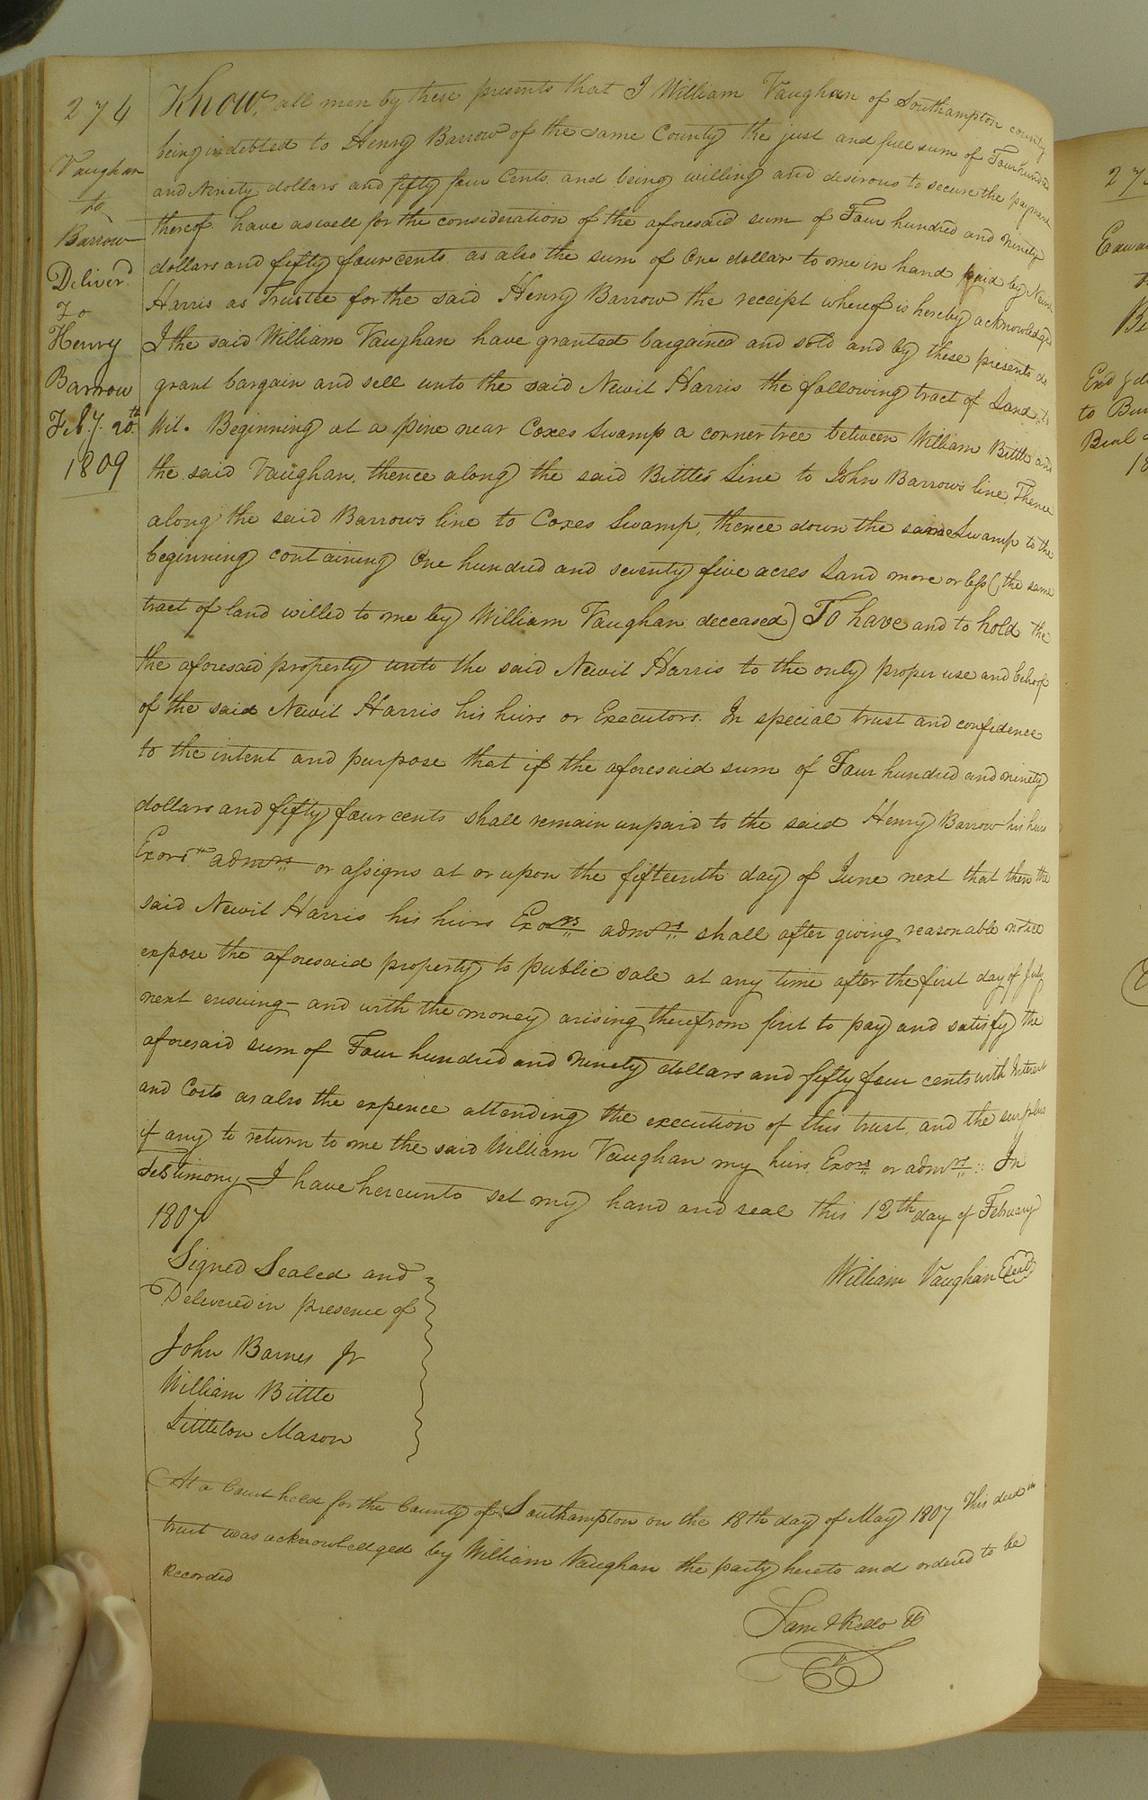 274
Vaughan
to
Barrow
Deliver.d
To
Henry
Barrow
Feb.y. 20th
1809
Know, all men by these presents that I William Vaughan of Southampton county
being indebted to Henry Barrow of the same County the just and full sum of Four hundred
and Ninety dollars and fifty four Cents. and being willing and desirous to secure the payment
thereof. have aswell for the consideration of the aforesaid sum of Four hundred and ninety
dollars and fifty four cents as also the sum of One dollar to me in hand paid by Newit
Harris as Trustee for the said Henry Barrow the receipt whereof is hereby acknowledged
I the said William Vaughan have granted bargained and sold and by these presents do
grant bargain and sell unto the said Newit Harris the following tract of Land to
Wit. Beginning at a pine near Coxes Swamp a corner tree between William Bittle and
the said Vaughan, thence along the said Bittle's Line to John Barrow's line, Thence
along the said Barrow's line to Coxes Swamp, thence down the same Swamp to the
beginning containing One hundred and seventy five acres Land more or less (the same
tract of land willed to me by William Vaughan deceased) To have and to hold the
the aforesaid property unto the said Newit Harris to the only proper use and behoof
of the said Newit Harris his heirs or Executors. In special trust and confidence
to the intent and purpose that if the aforesaid sum of Four hundred and ninety
dollars and fifty four cents shall remain unpaid to the said Henry Barrow his heirs
Exors admrs or assigns at or upon the fifteenth day of June next that then the
said Newit Harris his heirs Exors admrs shall after giving reasonable notice
expose the aforesaid property to public sale at any time after the first day of July
next ensuing - and with the money arising therefrom first to pay and satisfy the
aforesaid sum of Four hundred and Ninety dollars and fifty four cents with Interest
and Costs as also the expence attending the execution of this trust, and the surplus
if any to return to me the said William Vaughan my heirs Exors or admrs :: In
testimony I have hereunto set my hand and seal this 12th day of February
1807
William Vaughan (seal)
Signed Sealed and
Delivered in presence of
John Barnes Jr
William Bittle
Littleton Mason
At a Court held for the County of Southampton on the 18th day of May 1807 This deed in
trust was acknowledged by William Vaughan the party hereto and ordered to be
Recorded
Sam Kello